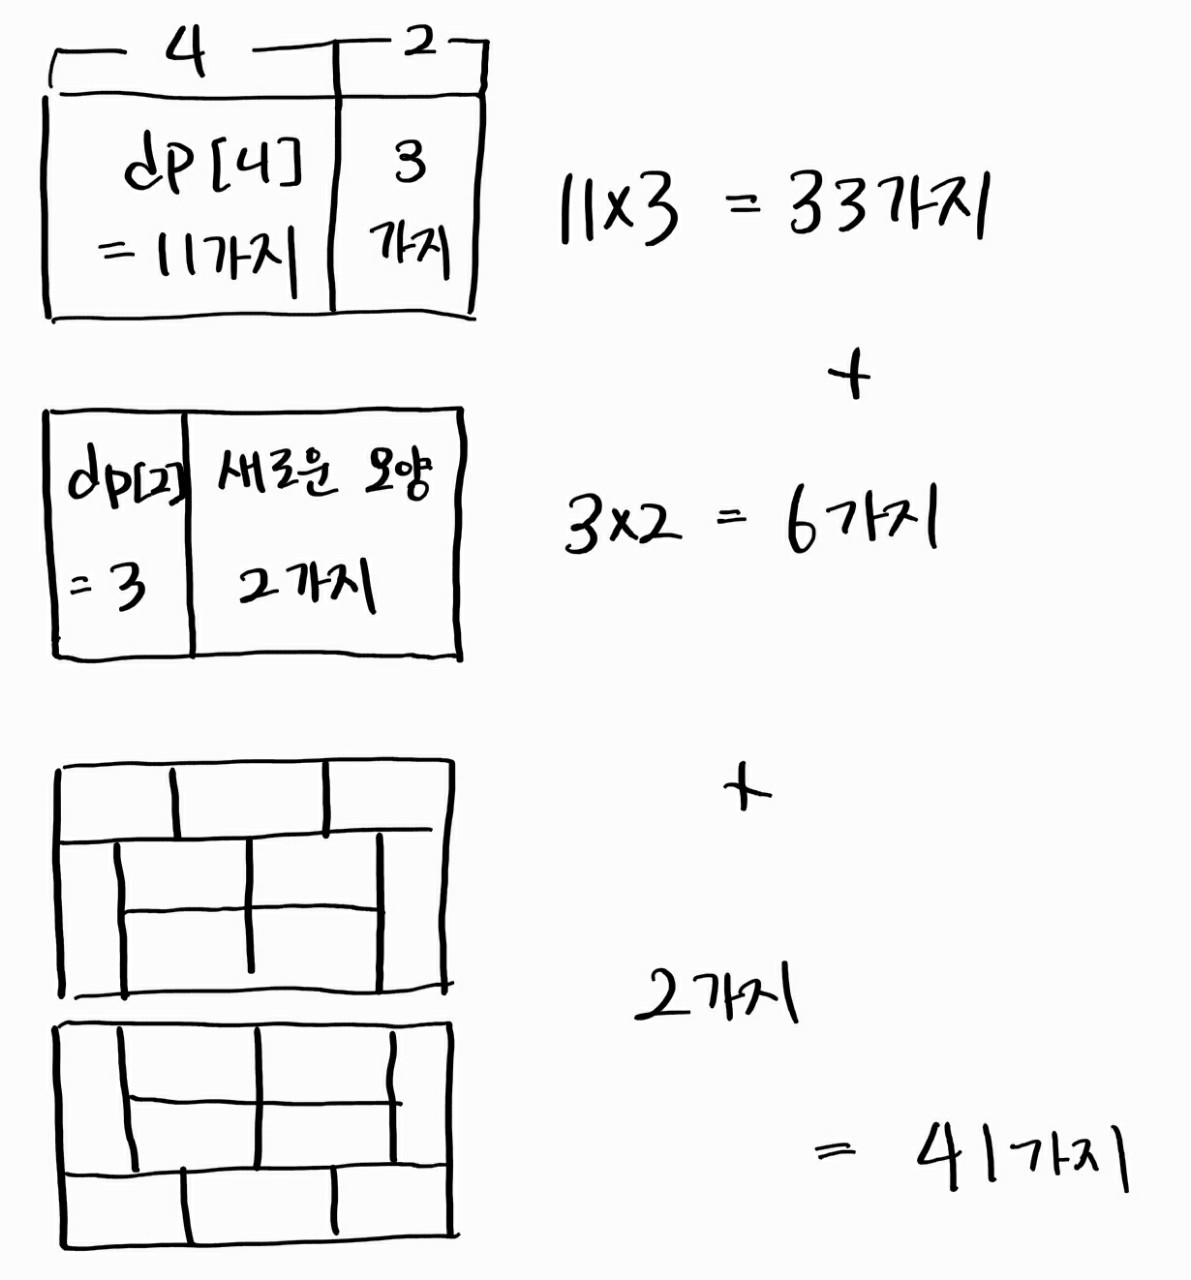 4 2
dp[4] 3
= 11가지 가지
11x3 = 33가지
+
dp[2] 새로운 모양
= 3 2가지
3x2 = 6가지
+
2가지
= 41가지